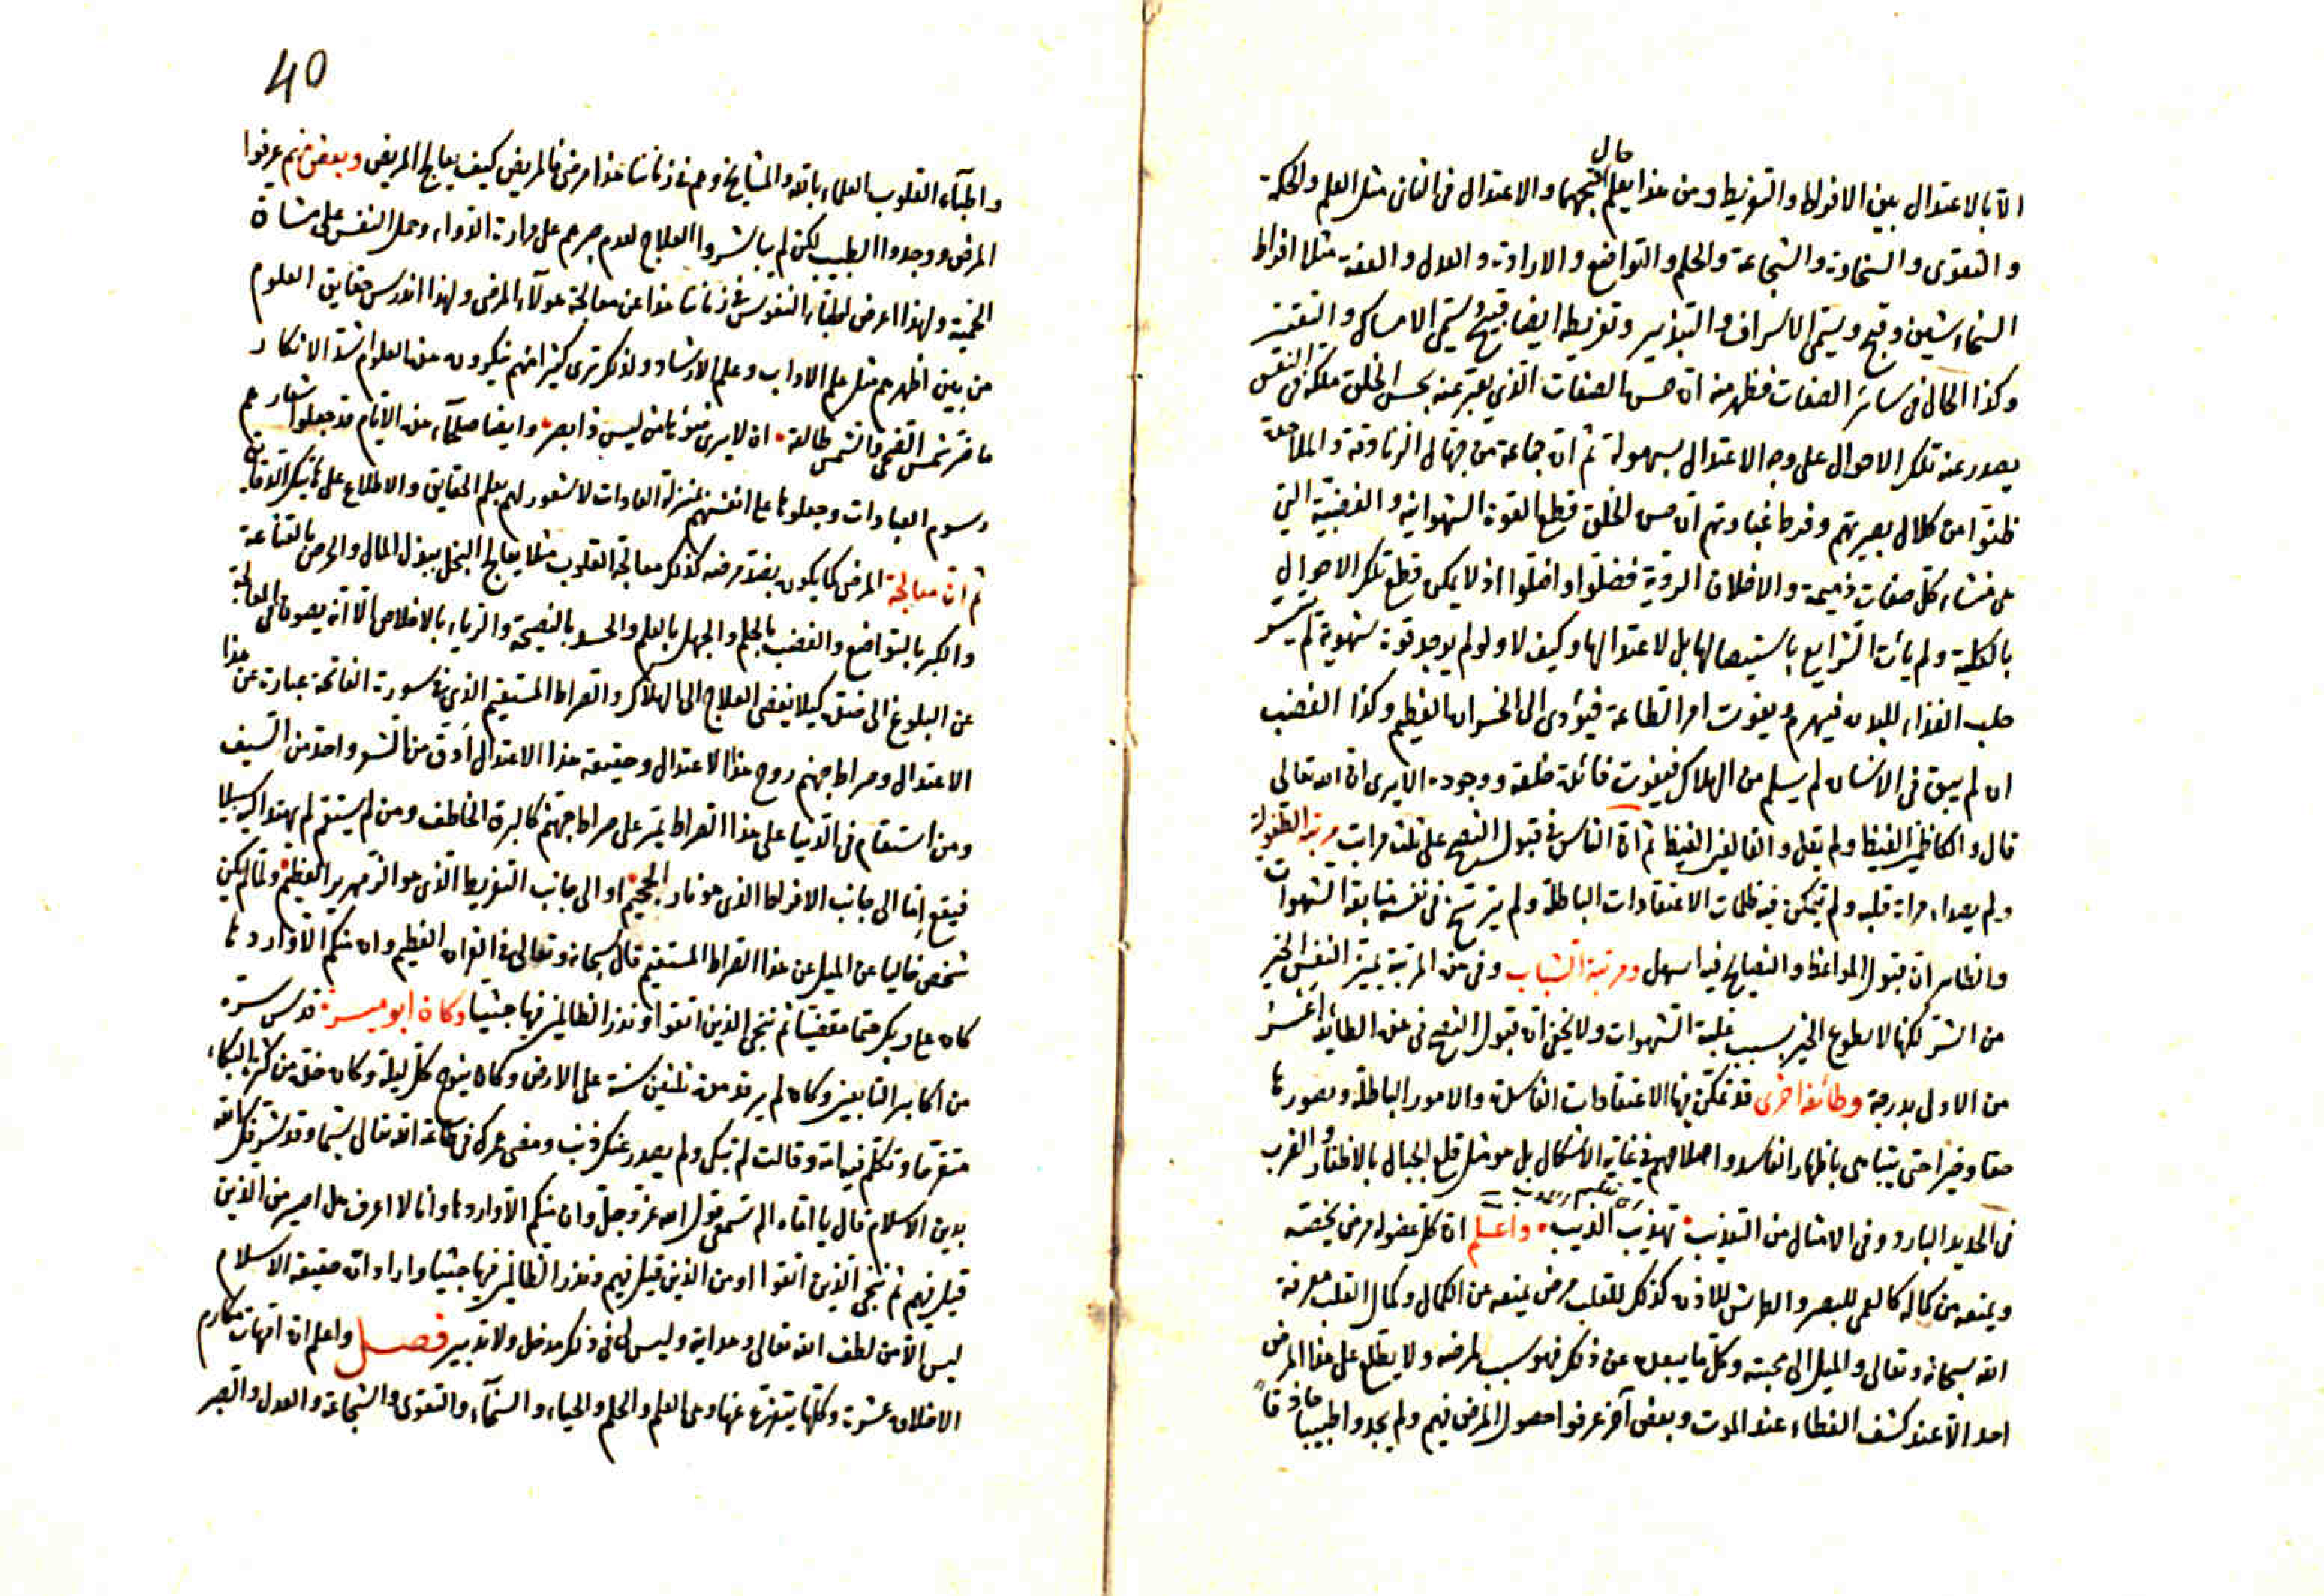 الا بالاعتدال بين الافراط والتفريط ومن هذا يعلم حال قبحهما والاعتدال فى الثانى مثل العلم والحكمة
والتقوى والسخاوة والشجاعة والحلم والتواضع والارادة والعدل والعفة مثلا افراط
السخاء شين وقبح ويسمى الاسراف والتبذير وتفريطه ايضا قبيح ويسمى الامساك والتقتير
وكذا الحال فى سائر الصفات فظهر منه ان حسن الصفات الذى يعبر عنه بحسن الخلق ملكة فى النفس
يصدر عنه تلك الاحوال على وجه الاعتدال بسهولة ثم ان جماعة من جهال الزنادقة والملاحدة
ظنوا من كلال بصيرتهم وفرط غباوتهم ان حسن الخلق قطع القوة الشهوانية والغضبية التى
هى منشاء كل صفات ذميمة والاخلاق الردية فضلوا واضلوا اذ لا يمكن قطع تلك الاحوال
بالكلية ولم يأت الشرايع باستيصالها بل لاعتدالها وكيف لا ولو لم يوجد قوة شهوية لم يتيسر
جلب الغذاء للبدن فيهرم ويفوت امر الطاعة فيؤدى الى الخسران العظيم وكذا الغضب
ان لم يبق فى الانسان لم يسلم من الهلاك فيفوت فائدة خلقه ووجوده الا يرى ان الله تعالى
قال والكاظمين الغيظ ولم يقل والفاقدين الغيظ ثم ان الناس فى قبول النصح على ثلث مراتب مرتبة الطفولة
ولم يصداء مراة قلبه ولم يتمكن فيه ظلمات الاعتقادات الباطلة ولم يترشح فى نفسه متابعة الشهوات
والظاهر ان قبول المواعظ والنصايح فيه اسهل ومرتبة الشباب وفى هذه المرتبة يميز النفس الخير
من الشر لكنها لا يطوع الخير بسبب غلبة الشهوات ولا يخفى ان قبول النصح فى هذه الطائفة اعسر
من الاول بدرجة وطائفة اخرى قد تمكن فيها الاعتقادات الفاسدة والامور الباطلة ويصورها
حقا وخيرا حتى يتباهى باظهار الفاسد واصلاحهم فى غاية الاشكال بل هو مثل قلع الجبال بالاظفار والضرب
فى الحديد البارد وفى الامثال من التعذيب تهذيب الذيب واعلم ان كل عضو له مرض يخصه
ويمنعه من كماله كالعمى للبصر والطرش للاذن كذلك للقلب مرض يمنعه عن الكمال وكمال القلب معرفة
الله سبحانه وتعالى والميل الى محبته وكل ما يبعده عن ذلك فهو سبب لمرضه ولا يطلع على هذا المرض
احد الا عند كشف الغطاء عند الموت وبعض آخر عرفوا حصول المرض فيهم ولم يجدوا طبيبا حاذقا
40
واطباء القلوب العلماء بالله والمشايخ وهم فى زماننا هذا مرضى فالمريض كيف يعالج المريض وبعض منهم عرفوا
المرض ووجدوا الطبيب لكن لم يباشروا العلاج لعدم صبرهم على مرارة الدواء وحمل النفس على مشاق
الحمية ولهذا اعرض اطباء النفوس فى زماننا هذا عن معالجة هولاء المرضى ولهذا اندرس حقايق العلوم
من بين اظهرهم مثل علم الاداب وعلم الارشاد ولذلك ترى كثيرا منهم ينكرون هذه العلوم اشد الانكار
ما ضر شمس الضحى والشمس طالعة ان لا يرى ضوءها من ليس ذا بصر وايضا صلحاء هذه الايام قد جعلوا شعارهم
رسوم العبادات وجعلوها على انفسهم بمنزلة العادات لا شعور لهم بعلم الحقايق والاطلاع على تلك الدقايق
ثم ان معالجة المرض كما يكون بضد مرضه كذلك معالجة القلوب مثلا يعالج البخل ببذل المال والحرص بالقناعة
والكبر بالتواضع والغضب بالحلم والجهل بالعلم والحسد بالنصيحة والرياء بالاخلاص الا انه يصون المعالجة
عن البلوغ الى ضده كيلا يفضى العلاج الى الهلاك والصراط المستقيم الذى فى سورة الفاتحة عبارة عن هذا
الاعتدال وصراط جهنم روح هذا الاعتدال وحقيقة هذا الاعتدال ادق من الشعر واحد من السيف
ومن استقام فى الدنيا على هذا الصراط يمر على صراط جهنم كالبرق الخاطف ومن لم يستقم لم يهتد اليه سبيلا
فيقع اما الى جانب الافراط الذى هو نار الجحيم او الى جانب التفريط الذى هو الزمهرير العظيم ولما لم يكن
شخص خاليا عن الميل عن هذا الصراط المستقيم قال سبحانه وتعالى فى القران العظيم وان منكم الا واردها
كان على ربك حتما مقضيا ثم ننجى الذين اتقوا ونذر الظالمين فيها جثيا وكان ابو ميسرة قدس سره
من اكابر التابعين وكان لم يرقد مدة ثلثين سنة على الارض وكان ينوح كل ليلة وكان خلق من كثرة البكاء
متفرقا وتكلم فيه امه وقالت لم تبكى ولم يصدر عنك ذنب ومضى عمرك فى طاعة الله تعالى سيما وقد شرفك الله
بدين الاسلام قال يا اماه الم تسمعى قول الله عز وجل وان منكم الا واردها وانا لا اعرف هل اصير من الذين
قيل فيهم ثم ننجى الذين اتقوا او من الذين قيل فيهم ونذر الظالمين فيها جثيا واراد ان حقيقة الاسلام
ليس الا من لطف الله تعالى وهدايته وليس لى فى ذلك مدخل ولا تدبير فصل واعلم ان امهات مكارم
الاخلاق عشرة وكلها يتفرع عنها وهى العلم والحلم والحياء والسخاء والتقوى والشجاعة والعدل والصبر